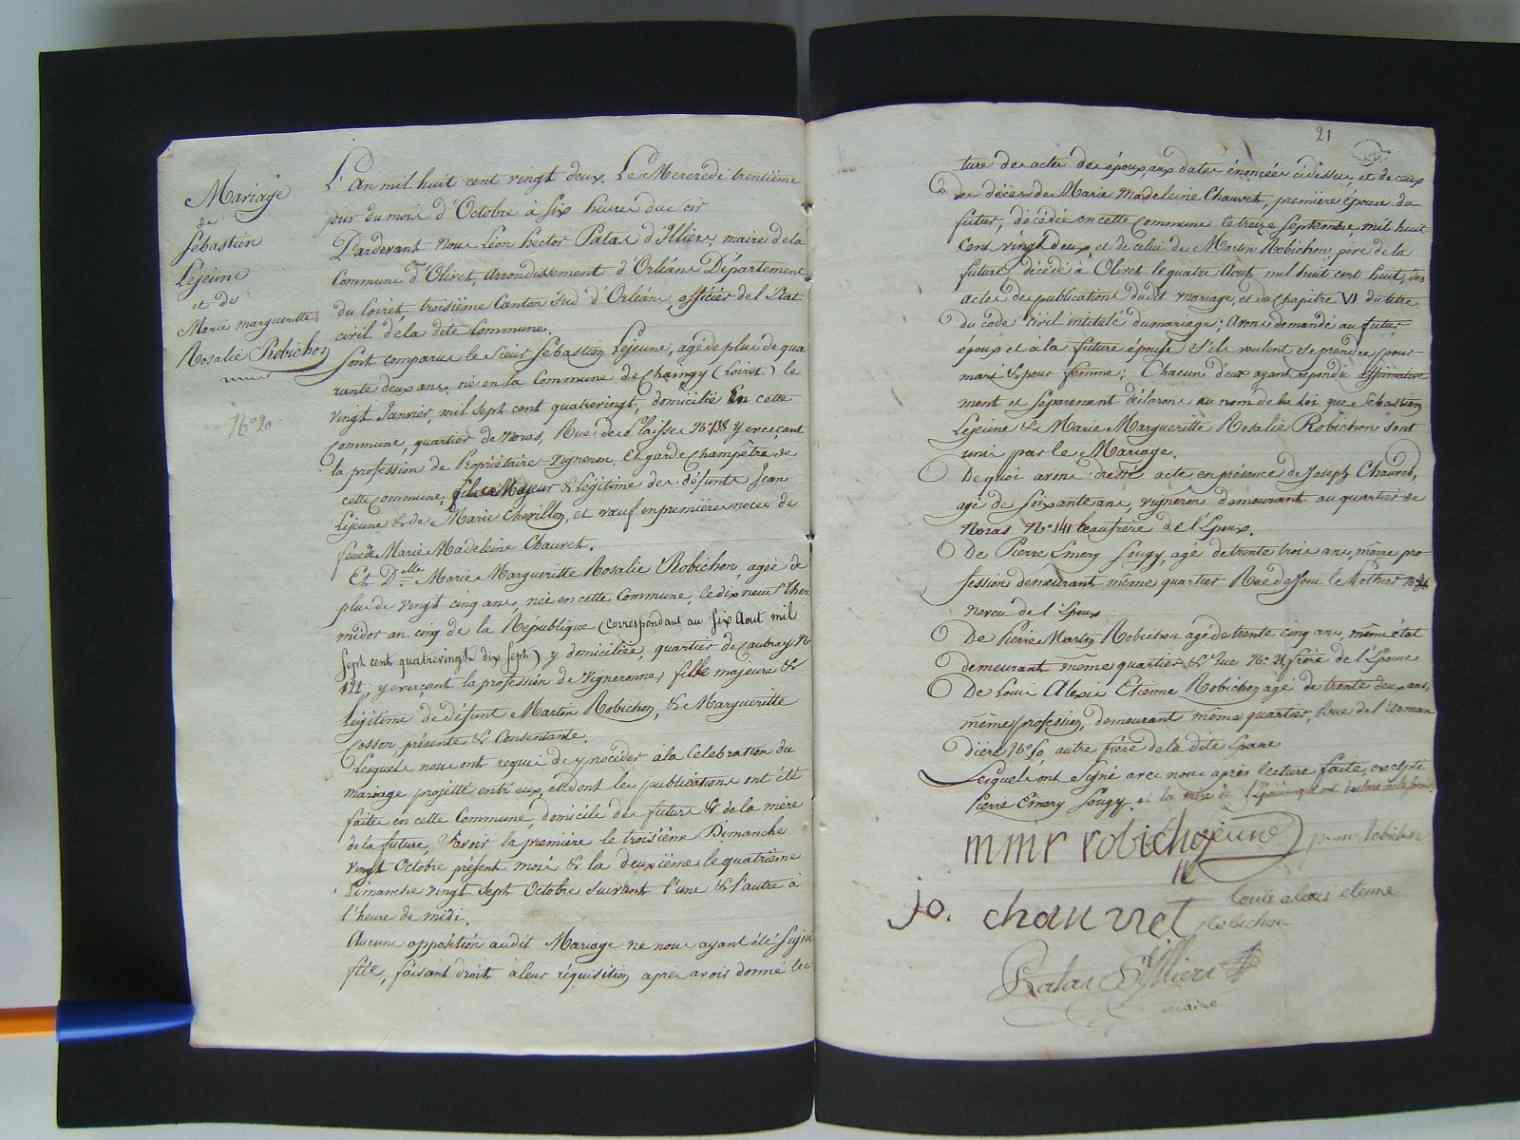 Mariage
de
Sébastien
Lejeune
et de
Marie margueritte
Rosalie Robichon
N° 20
L'An mil huit cent vingt deux, Le Mercredi trentième
jour du mois d'Octobre à six heures du soir
Pardevant nous Léon hector Patas d'Illiers, maire de la
Commune d'Olivet, arrondissement d'Orléans Département
du loiret, troisième Canton Sud d'Orléans, officier de l'Etat
civil de la dite Commune.
Sont comparus le sieur Sébastien Lejeune, agé de plus de qua
rante deux ans, né en la Commune de Chaingy (Loiret) le
vingt Janvier, mil sept cent quatrevingt, domicilié En cette
Commune, quartier de Noras, Rue de Plaisse N° 138 y exerçant
la profession de Propriétaire-Vigneron Et garde Champêtre de
cette Commune, fils Majeur & Légitime de défunts Jean
Lejeune & de Marie Chevillon, et veuf en premières noces de
feue Marie Madeleine Chauvet.
Et D.elle Marie Margueritte Rosalie Robichon, agée de
plus de vingt cinq ans, née en cette Commune, le dix neuf Ther
midor an cinq de la République (correspondant au six Aout mil
sept cent quatrevingt dix sept) y domiciliée, quartier de Caubray N°
y exerçant la profession de Vigneronne, fille majeure &
légitime de défunt Martin Robichon, & de Margueritte
Cosson présente & Consentante.
Lesquels nous ont requis de procéder à la Celebration du
mariage projetté entr'eux, et dont les publications ont été
faites en cette Commune, domicile des futurs & de la mère
de la future, Savoir la première le troisième Dimanche
vingt Octobre présent mois & la deuxième le quatrième
Dimanche vingt sept Octobre suivant l'une & l'autre à
l'heure de midi.
Aucune opposition audit Mariage ne nous ayant été signi
fiée, faisant droit à leur réquisition après avoir donné lec
21
ture des actes des époux aux dates énoncées ci dessus, et de ceux
de décès de Marie Madeleine Chauvet, première épouse du
futur, décédée en cette Commune le treize Septembre mil huit
Cent vingt deux et de celui de Martin Robichon, père de la
future, décédé à Olivet le quatre Aout mil huit cent huit, des
actes de publications dudit mariage, et du Chapitre VI du titre
du code Civil intitulé du mariage; avons demandé au futur
époux et à la future épouse s'ils veulent se prendre pour
mari & pour femme; Chacun d'eux ayant répondu affirmative
ment et séparément déclarons au nom de la loi que Sébastien
Lejeune & Marie Margueritte Rosalie Robichon sont
unis par le Mariage.
De quoi avons dressé acte en présence de Joseph Chauvet,
agé de soixante ans, vigneron demeurant au quartier de
Noras N° 141 beaufrère de l'Epoux.
De Pierre Emery Sougy, agé de trente trois ans, même pro
fession demeurant même quartier Rue
neveu de l'Epoux
De Pierre Martin Robichon agé de trente cinq ans, même état
demeurant même quartier & rue N° 21 frère de l'Epouse
De Louis Alexis Etienne Robichon agé de trente deux ans,
même profession, demeurant même quartier,
autre frère de la dite Epouse
Lesquels ont signé avec nous après lecture faite, excepté
Pierre Emery Sougy, et la mère de
mmr robichon
Lejeune
robichon
jo. chauvet
louis alexis etienne
Robichon
Patas d'Illiers
maire